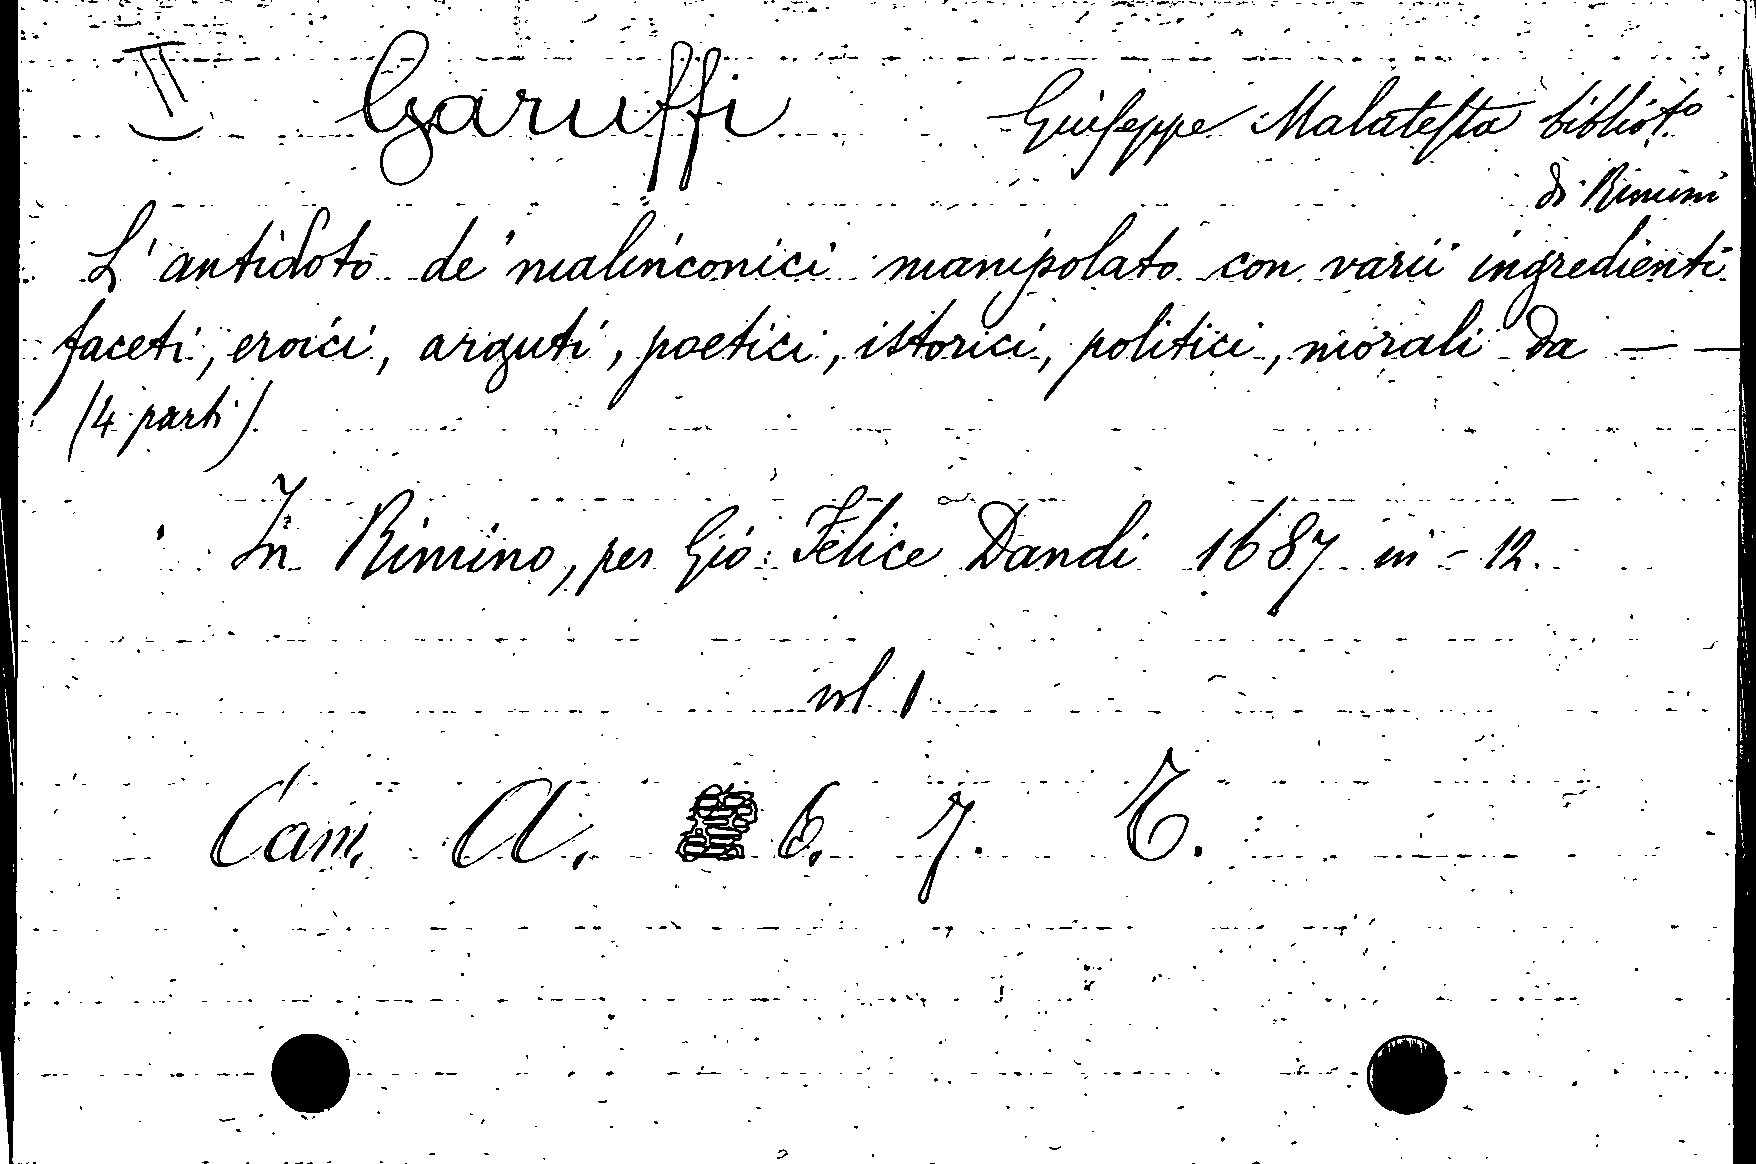 II Garuffi Giuseppe Malatesta bibliot.o
di Rimini
L'antidoto de' malinconici manipolato con varii ingredienti
faceti, eroici, arguti, poetici, istorici, politici, morali da — —
(4 parti)
In Rimino, per Gio: Felice Dandi 1687 in-12.
vol. 1
Cam. A. 6. 7.